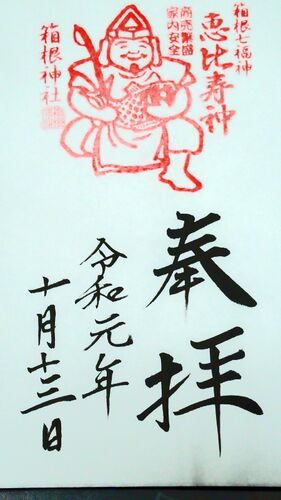 箱根七福神
恵比寿神
商売繁盛
家内安全
箱根神社
奉拝
令和元年
十月十三日